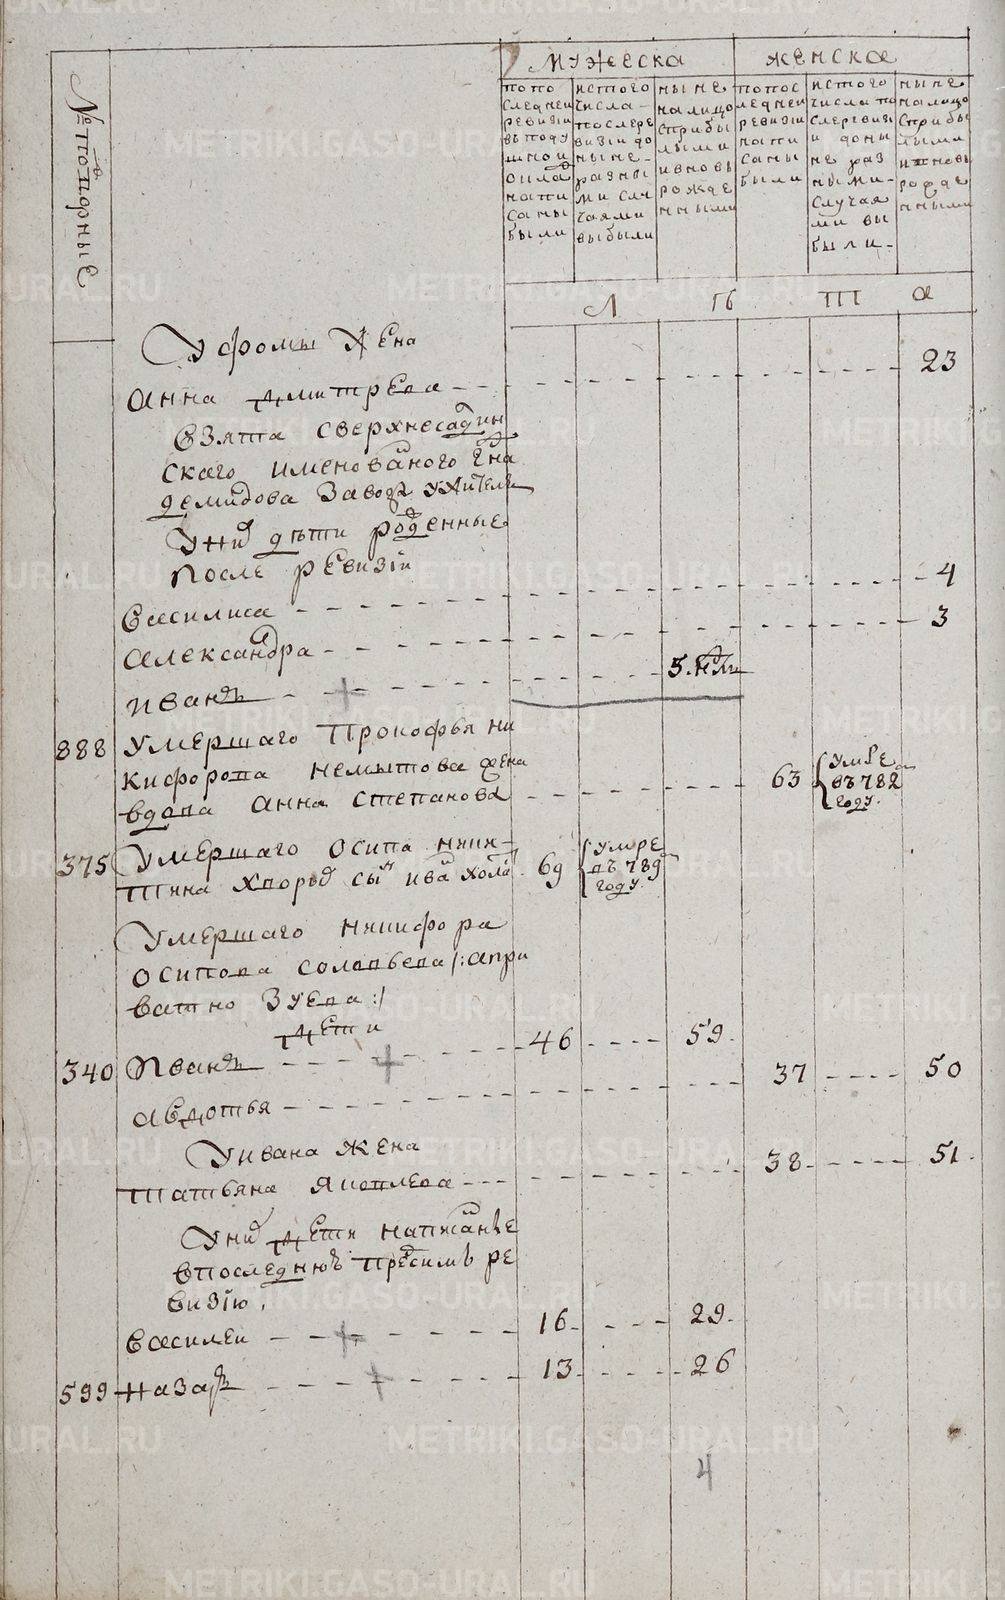 № торные
мужеска
женска
попо
следней
ревизіи
в поду
шной
окла
напи
саны
были
истого
числа
после ре
визіи до
ныне
разны
ми слу
чаями
выбыли
ныне
на лицо
с прибы
лыми
и вновь
рожде
нными
попос
ледней
ревизіи
напи
саны
были
истого
числа по
сле ревизи
и доны
не раз
ными
случая
ми вы
были
ныне
на лицо
с прибы
лыми
и вновь
рожде
нными
л ѣ т а
У фомы жена
анна дмитрева 23
взята с верхнесалдин
скаго именованого
демидова завода жител
У них дѣти рожденные
после ревизіи
василиса 4
александра 3
иванъ 5. н
888 умершаго прокофья ни
кифорова немытова жена
вдова анна степанова 63 умре
въ 782
году.
375 умершаго осипа
хворъ сын иван 69 умре
въ 789
году.
умершаго никифора
осипова соловьева /: а при
ватно Зуева :/
дети
340 Иванъ 46 59.
авдотья 37 50
У ивана жена
татьяна яковлева 38 51.
У них дети написанные
в последнюю пред сим ре
визію.
василей 16 29.
599 назаръ 13 26
4
METRIKI.GASO-URAL.RU